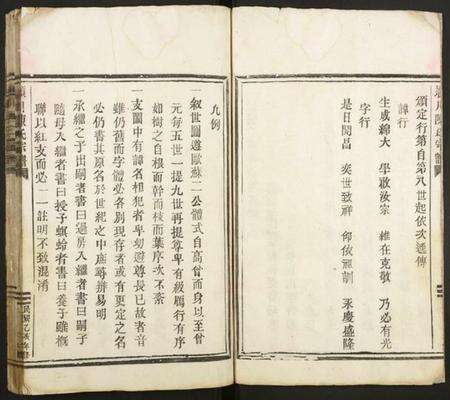 頒定行第自第八世起依次遞傳
諱行
生成綿大 學啟汝宗 維在克敬 乃必有光
字行
是日閱昌 奕世致祥 仰依祖訓 永慶盛隆
凡例
一叙世圖遵歐蘇二公體式自高曾而身以至曾
元每五世一提九世再提尊卑有級鴈行有序
如樹之自根而幹而枝而葉序次不紊
一支圖中有諱名相犯者卑幼遜尊長已故者音
雖仍舊而字體必各別現存者或有更定之名
必仍書其原名於世紀之中庶幾拼易明
一承繼之子出嗣者書曰過房入繼者書曰嗣子
隨母入繼者書曰授子螟蛉者書曰養子雖概
聯以紅支而必一一註明不致混淆